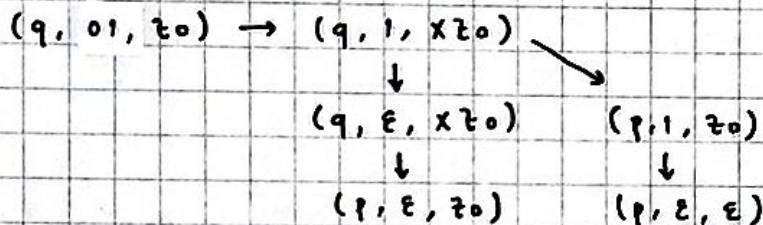 (q, 01, z0) → (q, 1, xz0)
↓ ↘
(q, ε, xz0) (p, 1, z0)
↓ ↓
(p, ε, z0) (p, ε, ε)